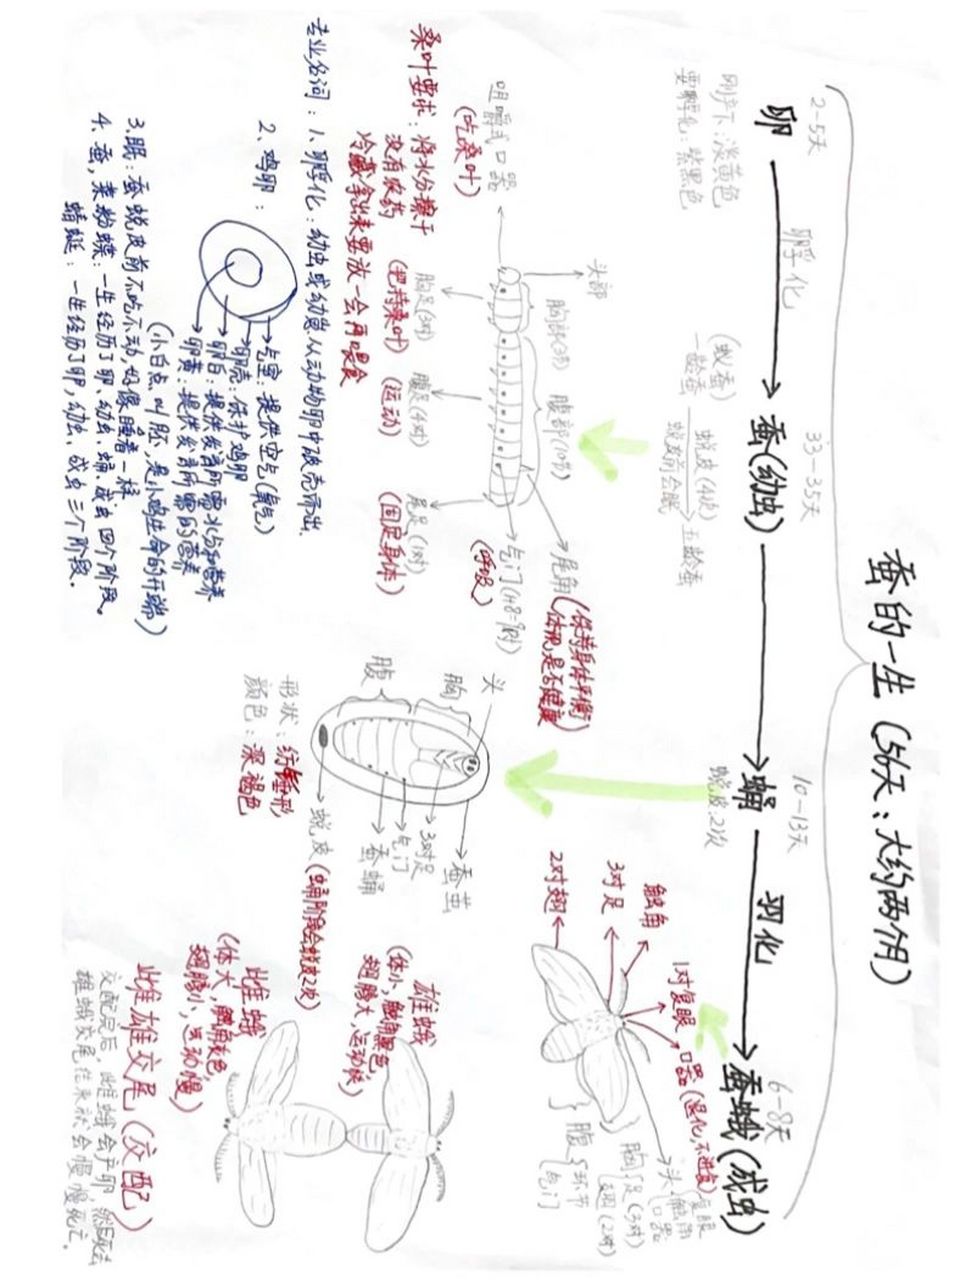 蚕的一生（56天：大约两个月）
2-5天
33-35天
10-13天
6-8天
卵
卵孵化
蚕(幼虫)
蛹
羽化
蚕蛾(成虫)
刚产下：淡黄色
要孵化：紫黑色
(蚁蚕)
一龄蚕
蜕皮(4次)
蜕皮前会眠
五龄蚕
蜕皮2次
头部
胸部(3节)
腹部(10节)
尾角(保持身体平衡
体现是否健康)
咀嚼式口器
(吃桑叶)
胸足(3对)
(把持桑叶)
腹足(4对)
(运动)
尾足(1对)
(固定身体)
气门(1+8=9对)
(呼吸)
桑叶要求：将水分擦干
没有农药
冷藏拿出来要放一会再喂食
头
胸
腹
蚕茧
3对足
气门
蚕蛹
蜕皮(蛹阶段会蜕皮2次)
形状：纺锤形
颜色：深褐色
1对复眼
口器(退化,不进食)
触角
3对足
2对翅
头
复眼
触角
口器
胸
足(3对)
翅(2对)
腹
环节
气门
雄蛾
(体小,触角黑色,
翅膀大,运动快)
雌蛾
(体大,触角灰色,
翅膀小,运动慢)
雌雄交尾(交配)
交配完后,雌蛾会产卵,然后死去
雄蛾交尾结束就会慢慢死亡。
专业名词：1、孵化：幼虫或幼崽从动物卵中破壳而出.
2、鸡卵：
气室：提供空气(氧气)
卵壳：保护鸡卵
卵白：提供发育所需水分和营养
卵黄：提供发育所需的营养
(小白点叫胚,是小鸡生命的开端)
3.眠：蚕蜕皮前不吃不动,好像睡着一样
4、蚕,菜粉蝶：一生经历了卵、幼虫、蛹、成虫四个阶段。
蜻蜓：一生经历了卵,幼虫、成虫三个阶段。